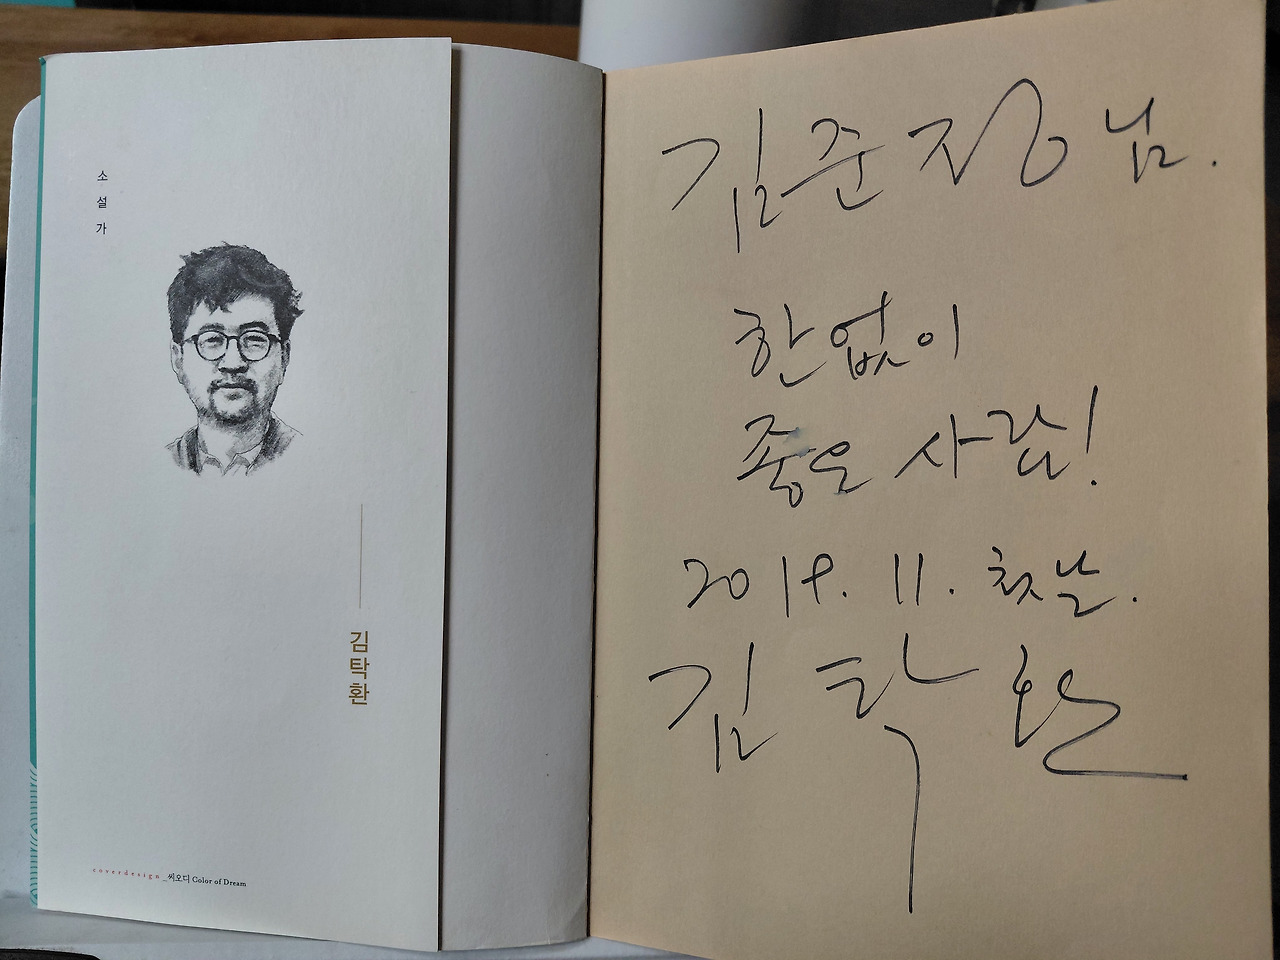 소설가
김탁환
coverdesign_씨오디 Color of Dream
김준정 님.
한없이
좋은 사람!
2019. 11. 첫날.
김탁환